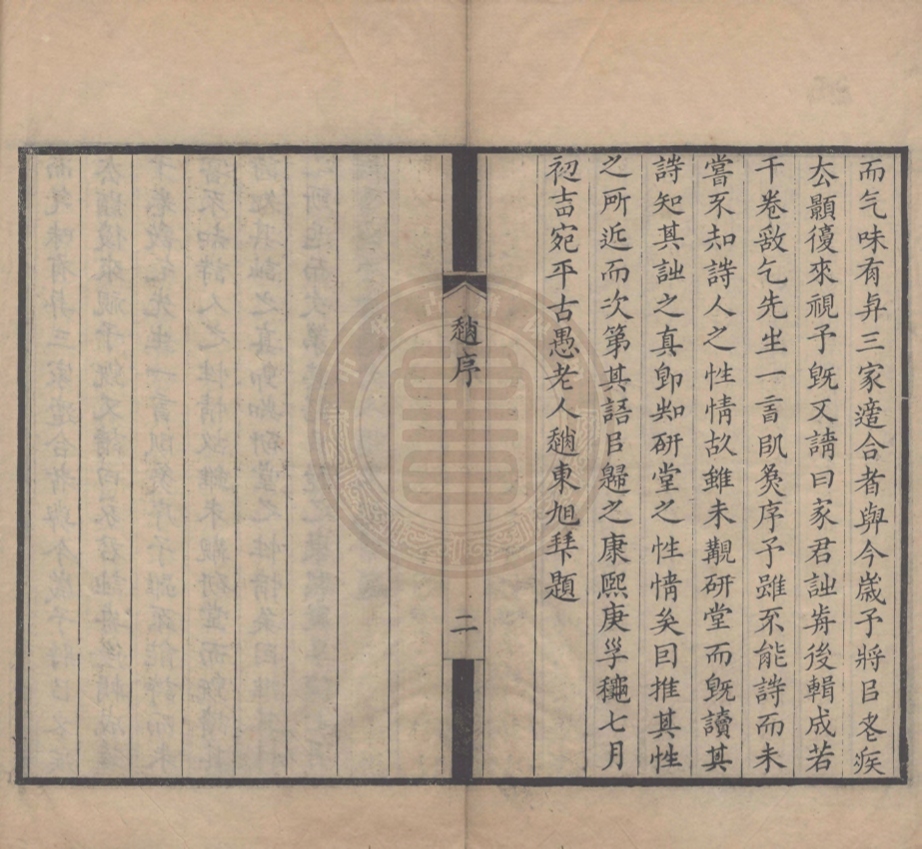 而气味有弅三家適合者與今歲予將㠯老疾
厺顥復來視予旣又請曰家君詘歬後輯成若
干卷敢乞先生一言㕁爲序予雖不能詩而未
嘗不知詩人之性情故雖未覯研堂而旣讀其
詩知其詘之真卽知研堂之性情矣因推其性
之所近而次第其語㠯歸之康熙庚 龝七月
初吉宛平古愚老人趙東旭拜題
趙序
二